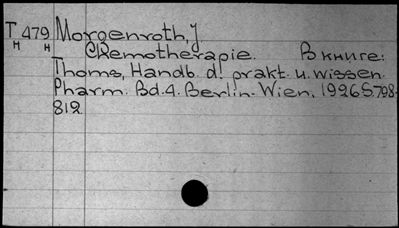 T 479 Morgenroth, J
н н Chemotherapie. В книге:
Thoms, Handb. d. prakt. u. wissen.
Pharm. Bd. 4. Berlin-Wien, 1926 S. 798-
812